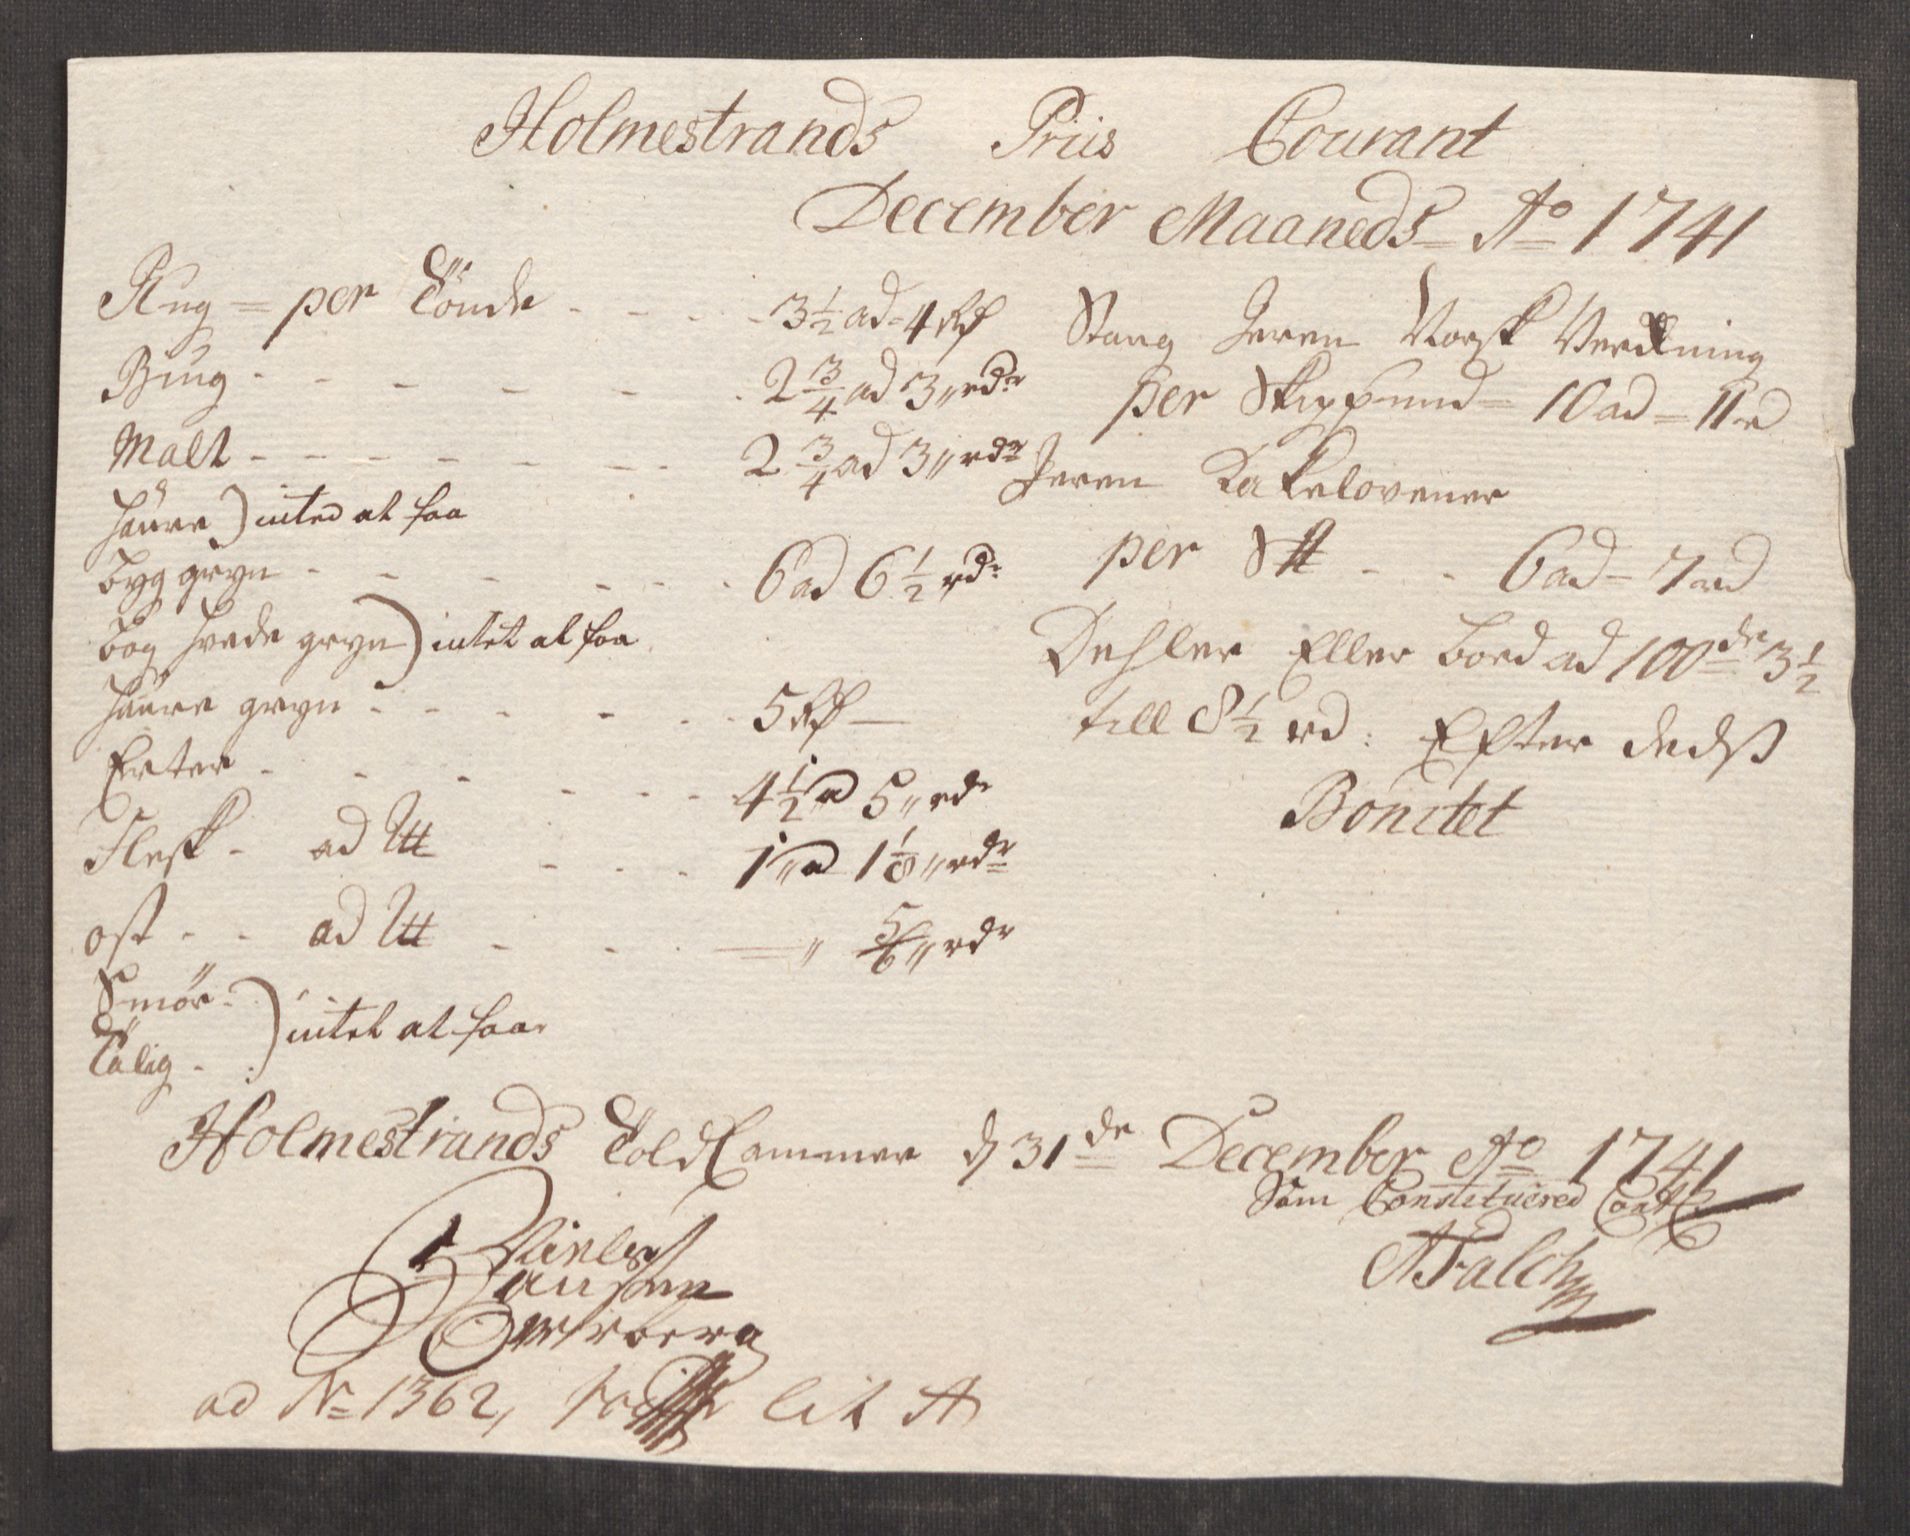 Holmestrands Priis Courant
December Maaneds Ao 1741
Rug = per Tönde - - - - 3½ ad 4 Rd
Biug - - - - - - 2¾ ad 3,, rdr
Malt - - - - - - - 2¾ ad 3,, rdr
haure ) inted at faa
byg gryn - - - - - - 6 ad 6½ rd:
bog hvede gryn ) intet at faa
haure gryn - - - - - - 5 Rd
Erter - - - - - - 4½ a 5,, rdr
Flesk - ad - - - 1,, a 1⅛,, rdr
ost - - ad - - - ,, 5/6,, rdr
Smör -
Tälig - : ) intet at faa
Stang Jeren Norsk Verkning
per Skippund = 10 ad = 11 rd
Jeren Kakelovener
per St - - 6 ad - 7 rd
Dehler Eller bord ad 100de 3½
till 8½ rd: Efter dedß
Bonitet
Holmestrands Told Cammer d 31de December Ao 1741
Niels
Jansen
Som Constituered Cont
AFalch
ad No 1362, lit A